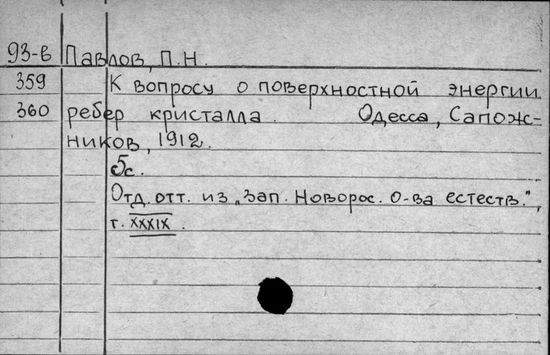 93-в Павлов, П.Н.
359 К вопросу о поверхностной энергии
360 ребер кристалла. Одесса, Сапож-
ников, 1912.
5с.
Отд. отт. из „Зап. Новорос. О-ва естеств.",
т. XXXIX.